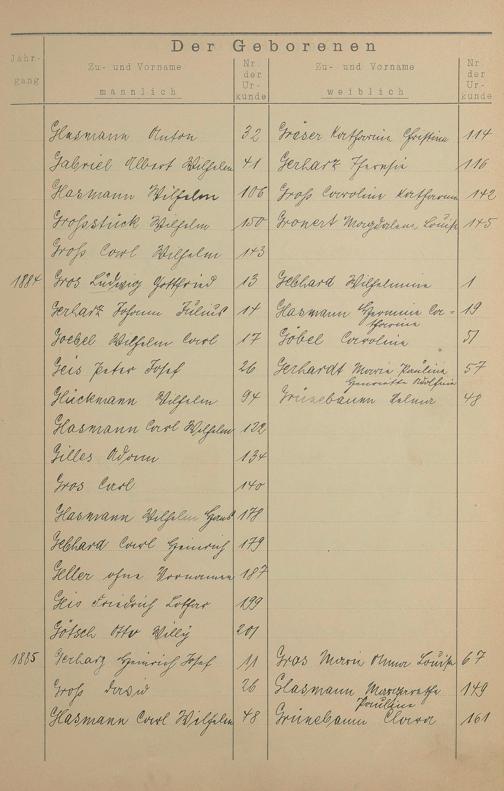 Der Geborenen
Jahr-
gang
Zu- und Vorname
männlich
Nr.
der
Ur-
kunde
Zu- und Vorname
weiblich
Nr.
der
Ur-
kunde
Glasmann Anton 32 Gräser Katharine Christine 114
Gabriel Albert Wilhelm 41 Gerharz 116
Glasmann Wilhelm 106 Groß Caroline Katharina 142
Großstück Wilhelm 150 Gronert Magdalena Louise 145
Groß Carl Wilhelm 143
1884 Gros Ludwig Gottfried 13 Gebhard Wilhelmine 1
Gerharz Johann Julius 14 Glasmann Hermine Ca- 19
tharina
Goebel Wilhelm Carl 17 Göbel Caroline 51
Geis Peter Josef 26 Gerhardt Marie Pauline 57
Henriette Adolfine
Glückmann Wilhelm 94 Grünebaum Selma 48
Glasmann Carl Wilhelm 122
Gilles Adam 134
Gros Carl 140
Glasmann Wilhelm 178
Gebhard Carl Heinrich 179
Geller ohne Vornamen 187
Geis Friedrich Lothar 199
Götsch Otto Willy 201
1885 Gerharz Heinrich Josef 11 Gros Marie Anna Louise 67
Groß David 26 Glasmann Margarethe 149
Pauline
Glasmann Carl Wilhelm 48 Grünebaum Clara 161